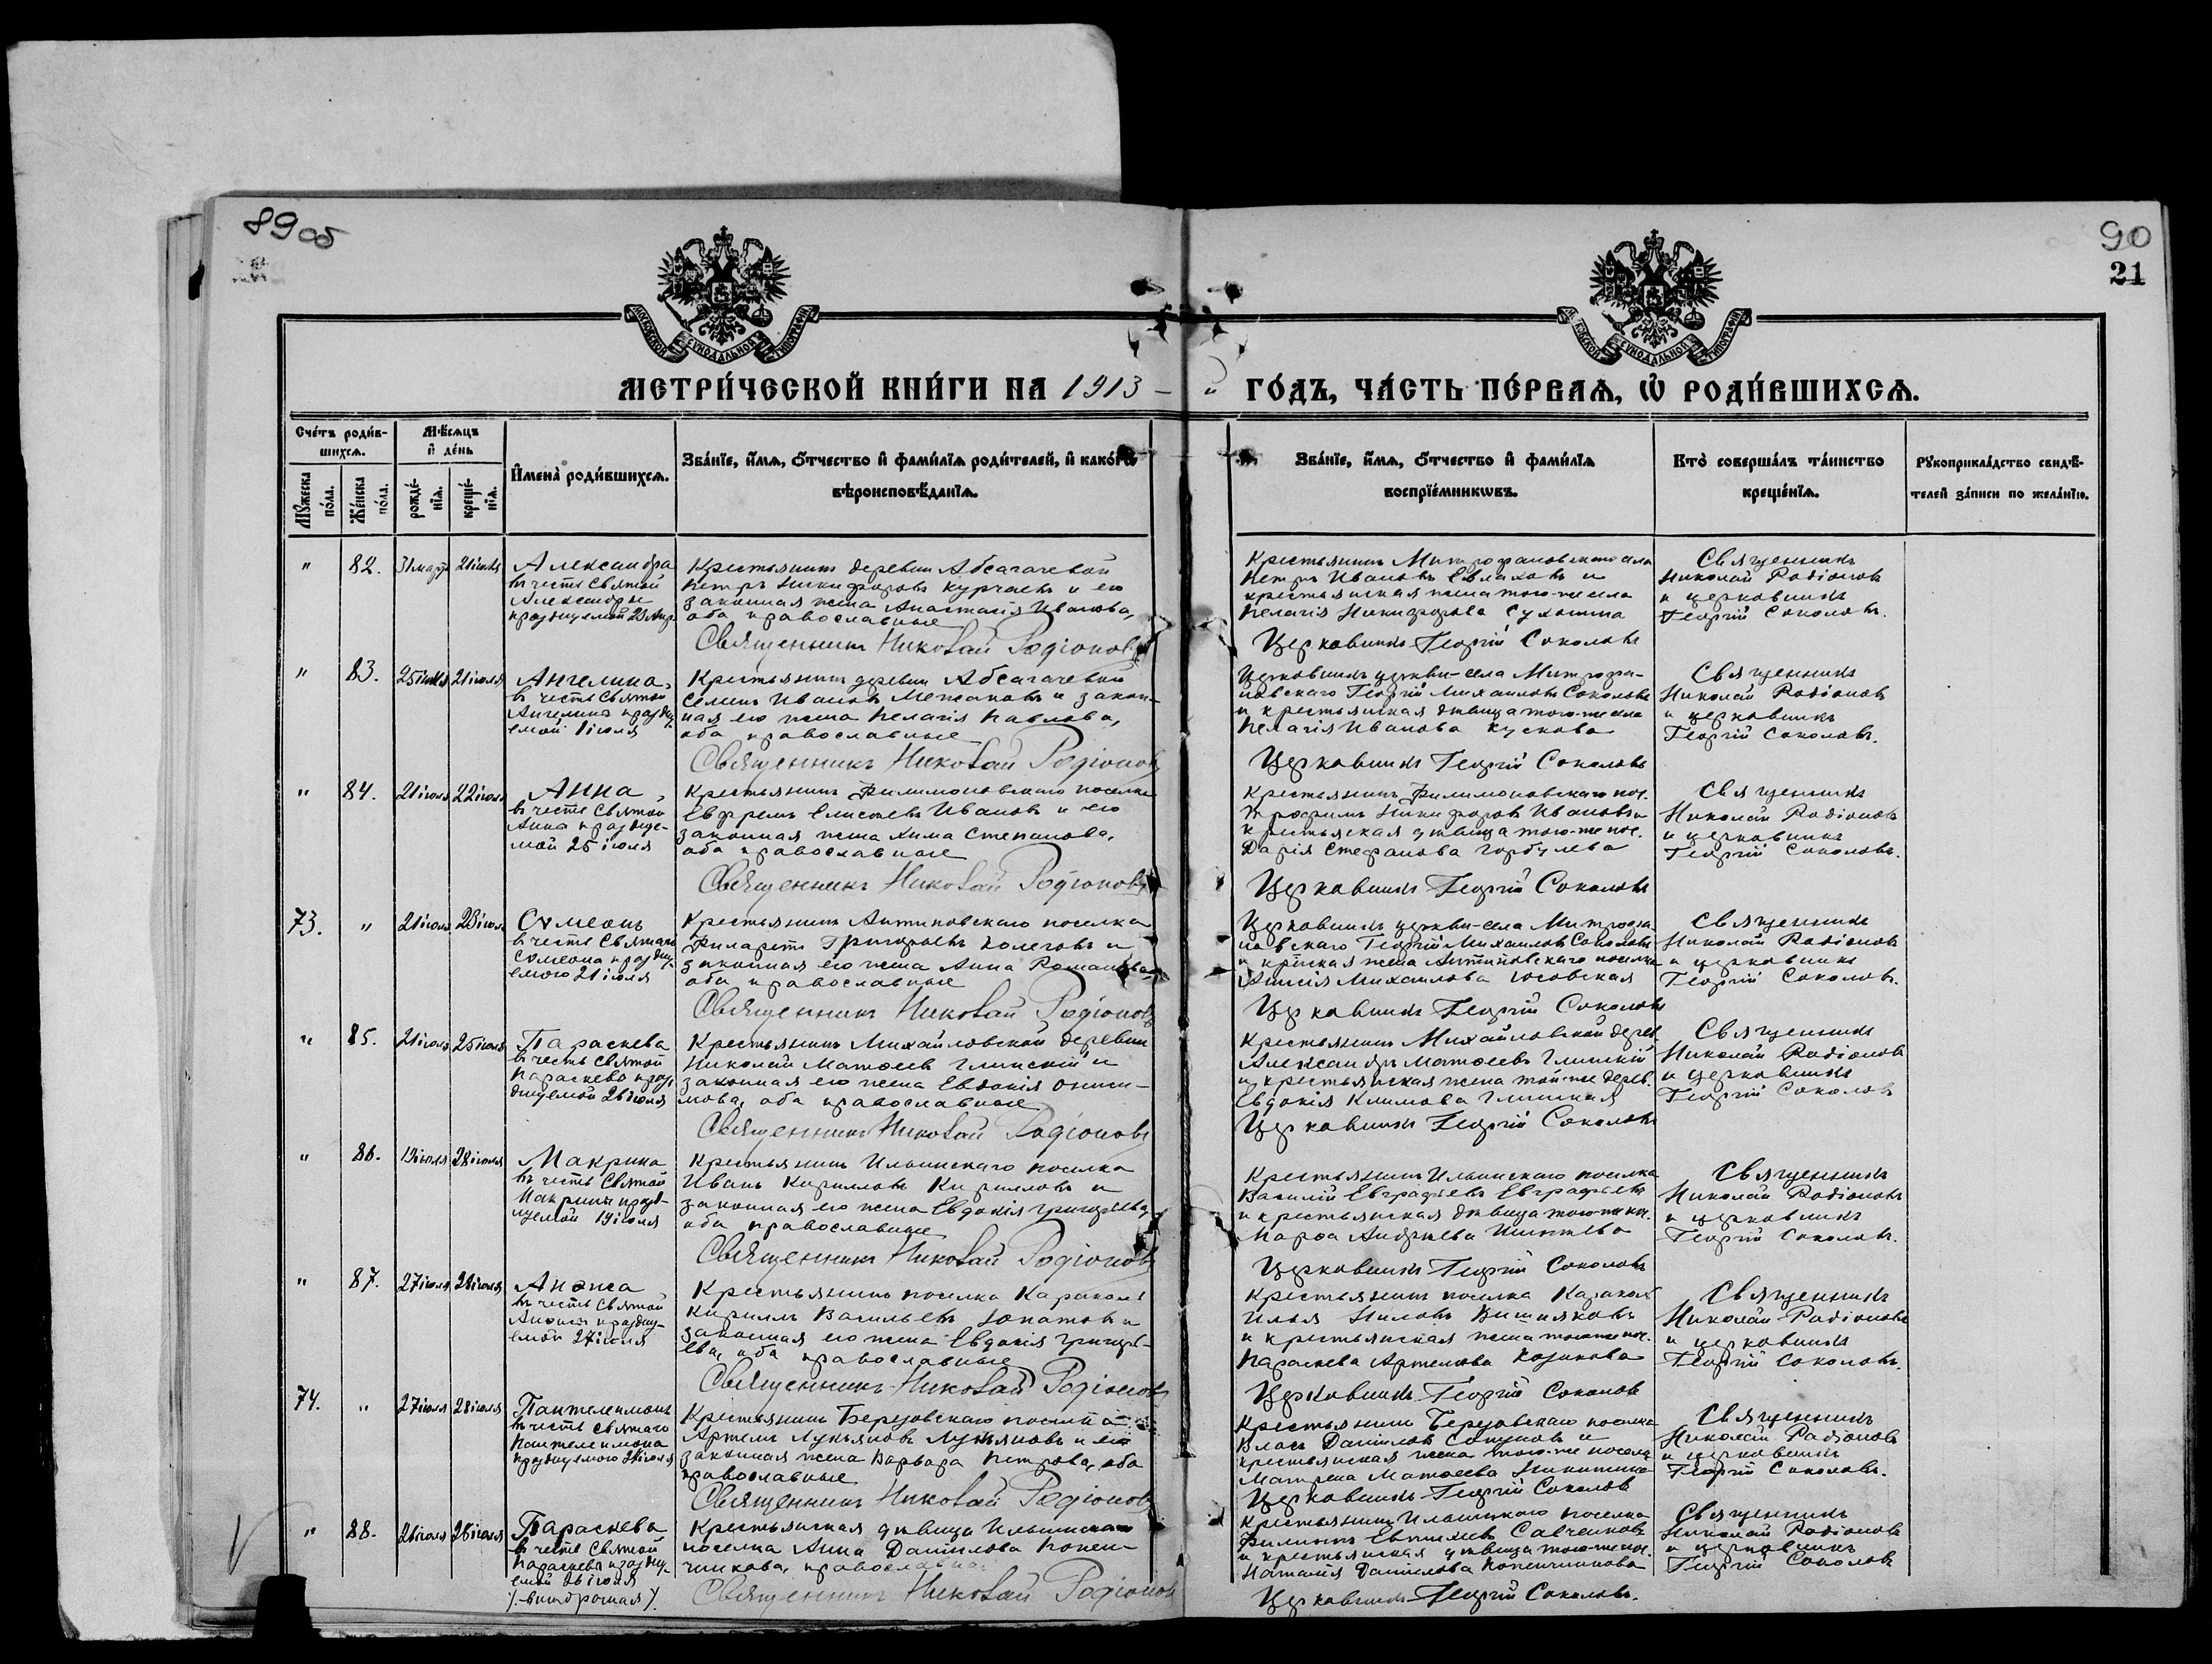 89 об
90
21
МОСКОВСКОЙ СѴНОДАЛЬНОЙ ТИПОГРАФІИ
МОСКОВСКОЙ СѴНОДАЛЬНОЙ ТИПОГРАФІИ
МЕТРИ́ЧЕСКОЙ КНИ́ГИ НА 1913 — "
ГО́ДЪ, ЧА́СТЬ ПЕ́РВАѦ, Ѡ҆ РОДИ́ВШИХСѦ.
Сче́тъ роди́в-
шихсѧ.
Мꙋ́жеска по́ла.
Же́нска по́ла.
Мѣ́сѧцъ
и҆ де́нь
рожде́-
нїѧ.
креще́-
нїѧ.
И҆мена̀ роди́вшихсѧ.
Зва́нїе, и҆́мѧ, ѻ҆́тчество и҆ фами́лїѧ роди́телей, и҆ како́гѡ
вѣроисповѣ́данїѧ.
Зва́нїе, и҆́мѧ, ѻ҆́тчество и҆ фами́лїѧ
воспрїе́мникѡвъ.
Кто̀ соверша́лъ та́инство
креще́нїѧ.
Рꙋкоприкла́дство свидѣ́-
телей за́писи по жела́нїю.
" 82. 31 март 21 іюля
Александра
въ честь Святой
Александры
празднуемой 23 Апр.
Крестьянинъ деревни Абсагачевой
Петръ Никифоровъ Курчаевъ и его
законная жена Анастасія Иванова,
оба православные
Священникъ Николай Родіоновъ
Крестьянинъ Митрофановскаго села
Петръ Ивановъ Евлаховъ и
крестьянская жена того-же села
Пелагія Никифорова Сухотина
Церковникъ Георгій Соколовъ
Священникъ
Николай Родіоновъ
и церковникъ
Георгій Соколовъ.
" 83. 25 іюня 21 іюля
Ангелина,
въ честь Святой
Ангелина праздну-
емой 1 іюля
Крестьянинъ деревни Абсагачевой
Семенъ Ивановъ Межаковъ и закон-
ная его жена Пелагія Павлова,
оба православные
Священникъ Николай Родіоновъ
Церковникъ церкви-села Митрофа-
новскаго Георгій Михаиловъ Соколовъ
и крестьянская дѣвица того-же села
Пелагія Иванова Кускова
Церковникъ Георгій Соколовъ
Священникъ
Николай Родіоновъ
и церковникъ
Георгій Соколовъ.
" 84. 21 іюля 22 іюля
Анна,
въ честь Святой
Анна праздуе-
мой 25 іюля
Крестьянинъ Филимоновскаго поселка
Евфремъ Елисѣевъ Ивановъ и его
законная жена Хима Степанова,
оба православные
Священникъ Николай Родіоновъ
Крестьянинъ Филимоновскаго пос.
Трофимъ Никифоровъ Ивановъ и
крестьянская дѣвица того-же пос.
Дарія Стефанова Горбулева
Церковникъ Георгій Соколовъ
Священникъ
Николай Родіоновъ
и церковникъ
Георгій Соколовъ.
73. " 21 іюля 23 іюля
Сѵмеонъ
въ честь Святаго
Сѵмеона праздну-
емого 21 іюля
Крестьянинъ Антиповскаго поселка
Филаретъ Григорьевъ Колеговъ и
законная его жена Анна Романова,
оба православные
Священникъ Николай Родіоновъ
Церковникъ церкви-села Митрофа-
новскаго Георгій Михаиловъ Соколовъ
и кр-ская жена Антиповскаго поселка
Анисія Михаилова Юсовская
Церковникъ Георгій Соколовъ
Священникъ
Николай Родіоновъ
и церковникъ
Георгій Соколовъ.
" 85. 21 іюля 25 іюля
Параскева
въ честь Святой
Параскева праз-
днуемой 26 іюля
Крестьянинъ Михайловской деревни
Николай Матѳеевъ Глинскій и
законная его жена Евдокія Ониси-
мова, оба православные
Священникъ Николай Родіоновъ
Крестьянинъ Михайловской дерев.
Александръ Матѳеевъ Глинскій
и крестьянская жена той-же дерев.
Евдокія Климова Глинская
Церковникъ Георгій Соколовъ
Священникъ
Николай Родіоновъ
и церковникъ
Георгій Соколовъ
" 86. 19 іюля 28 іюля
Макрина
въ честь Святой
Макрины празд-
нуемой 19 іюля
Крестьянинъ Ильинскаго поселка
Иванъ Кирилловъ Кирилловъ и
законная его жена Евдокія Григорьева,
оба православные
Священникъ Николай Родіоновъ
Крестьянинъ Ильинскаго поселка
Василій Евграфьевъ Евграфьевъ
и крестьянская дѣвица того-же пос.
Марѳа Андреева
Церковникъ Георгій Соколовъ
Священникъ
Николай Родіоновъ
и церковникъ
Георгій Соколовъ.
" 87. 27 іюля 28 іюля
Анѳиса
въ честь Святой
Анѳисы праздну-
емой 27 іюля
Крестьянинъ поселка Караколъ
Кириллъ Васильевъ Лопатовъ и
законная его жена Евдокія Григорь-
ева, оба православные
Священникъ Николай Родіоновъ
Крестьянинъ поселка Караколъ
Илья Ниловъ Вишняковъ
и крестьянская жена того-же пос.
Параскева Артемова Казакова
Церковникъ Георгій Соколовъ
Священникъ
Николай Родіоновъ
и церковникъ
Георгій Соколовъ.
74. " 27 іюля 28 іюля
Пантелеимонъ
въ честь Святаго
Пантелеимона
празднуемого 27 іюля
Крестьянинъ Березовскаго поселка
Артемъ Лукьяновъ Лукьяновъ и его
законная жена Варвара Петрова, оба
православные
Священникъ Николай Родіоновъ
Крестьянинъ Березовскаго поселка
Власъ Даниловъ и
крестьянская жена того-же поселка
Матрена Матѳеева Никитина
Церковникъ Георгій Соколовъ
Священникъ
Николай Родіоновъ
и церковникъ
Георгій Соколовъ.
" 88. 26 іюля 28 іюля
Параскева
въ честь Святой
Параскева праздну-
емой 26 іюля
/. внѣбрачная /.
Крестьянская дѣвица Ильинскаго
поселка Анна Данилова Копен-
чикова, православна.
Священникъ Николай Родіоновъ
Крестьянинъ Ильинскаго поселка
Филиппъ Евтихіевъ Савченковъ
и крестьянская дѣвица того-же пос.
Наталія Данилова Копенчикова
Церковникъ Георгій Соколовъ.
Священникъ
Николай Родіоновъ
и церковникъ
Георгій Соколовъ